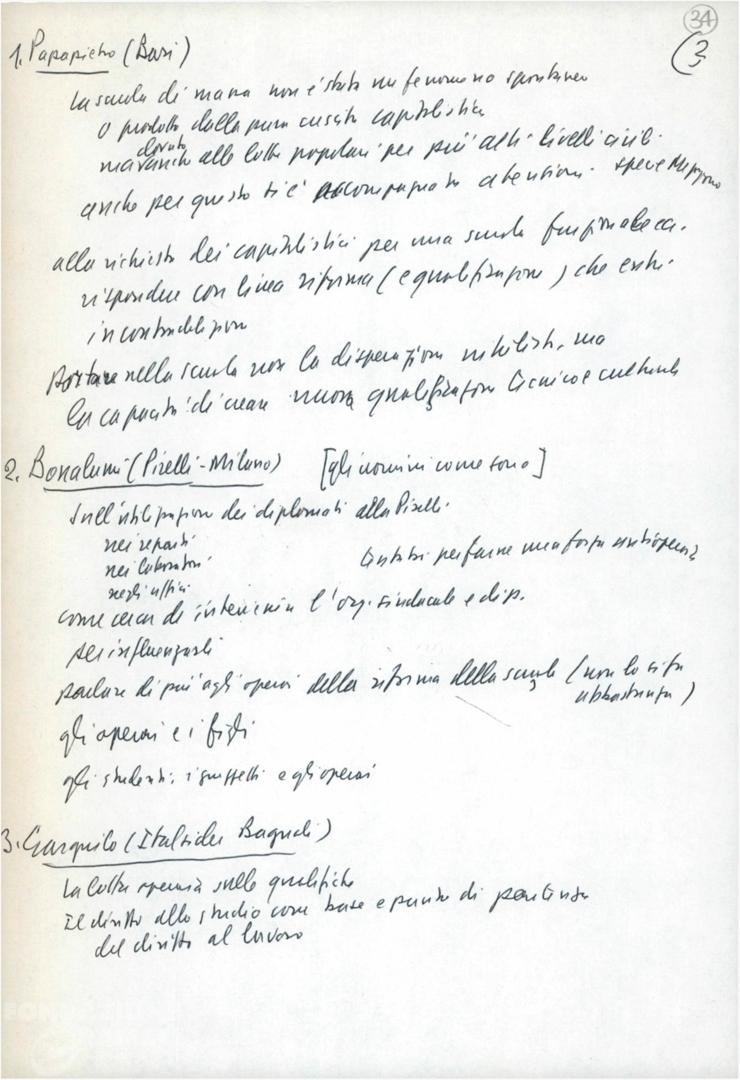 34
(3
1. Papapietro (Bari)
La scuola di massa non è stata un fenomeno spontaneo
o prodotto dalla pura crescita capitalistica
dovuto
ma anche alle lotte popolari per più alti livelli civili.
anche per questo si è accompagnata a tensioni. specie Mezzogiorno
alla richiesta dei capitalistici per una scuola funzionale ecc.
rispondere con linea riforma (e qualificazione) che entri
in contraddizione
portare nella scuola non la disperazione nihilista, ma
la capacità di creare nuova qualificazione tecnica e culturale
2. Bonalumi (Pirelli - Milano) [gli uomini come sono]
Sull'utilizzazione dei diplomati alla Pirelli.
nei reparti
nei laboratori
negli uffici
tentativi per farne una forza antioperaia
come cerca di intervenire l'org. sindacale e dip.
per influenzarli
parlare di più agli operai della riforma della scuola (non lo si fa
abbastanza)
gli operai e i figli
gli studenti, i gruppetti e gli operai
3. Gargiulo (Italsider Bagnoli)
La lotta operaia sulle qualifiche
Il diritto allo studio come base e punto di partenza
del diritto al lavoro